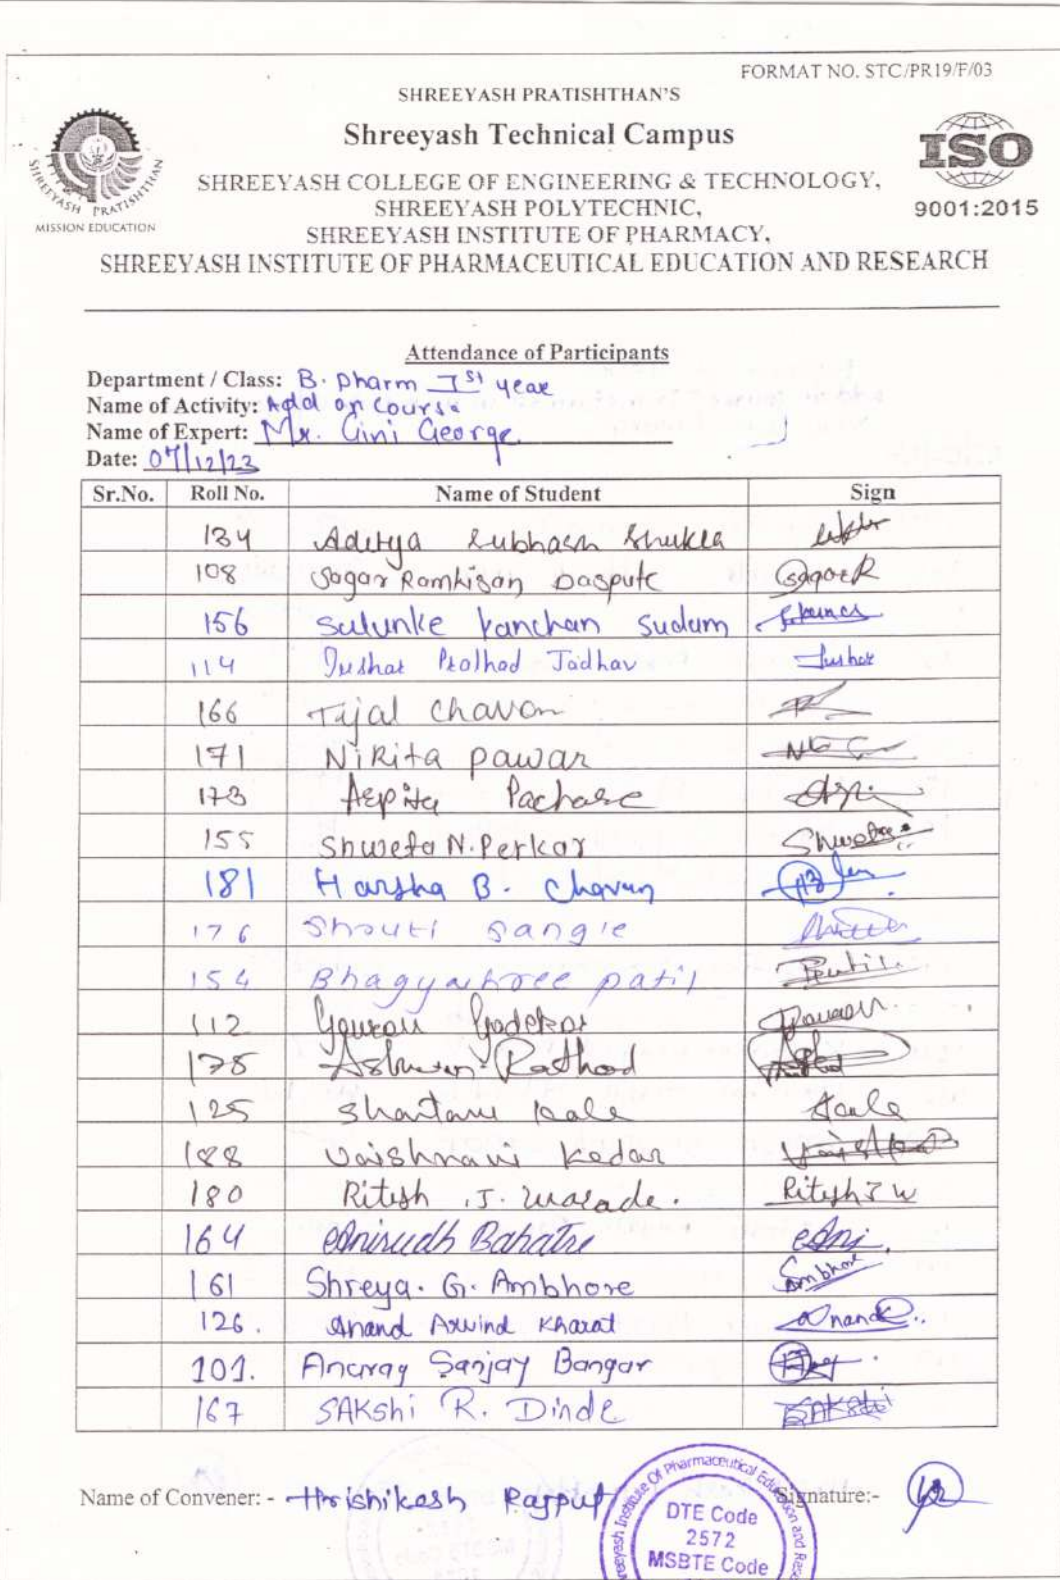 FORMAT NO. STC/PR19/F/03
SHREEYASH PRATISHTHAN'S
Shreeyash Technical Campus
SHREEYASH COLLEGE OF ENGINEERING & TECHNOLOGY,
SHREEYASH POLYTECHNIC,
SHREEYASH INSTITUTE OF PHARMACY,
SHREEYASH INSTITUTE OF PHARMACEUTICAL EDUCATION AND RESEARCH
SHREEYASH PRATISHTHAN
MISSION EDUCATION
ISO
9001:2015
Attendance of Participants
Department / Class: B. Pharm Ist year
Name of Activity: Add on Course
Name of Expert: Mr. Gini George
Date: 07/12/23
Sr.No. Roll No. Name of Student Sign
134 Aditya Subhash Shukla
108 Sagar Ramkisan Daspute SagarR
156 Salunke Kanchan Sudam
114 Tushar Pralhad Jadhav Tushar
166 Tejal Chavan
171 Nikita Pawar
173 Arpita Pachare
155 Shweta N. Perkar Shweta
181 Harsha B. Chavan
176 Shruti Sangle
154 Bhagyashree patil Patil
112 Gaurav Gadekar
178 Ashwin Rathod
125 Shantanu Kale Kale
188 Vaishnavi Kedar
180 Ritesh .J. Warade. Ritesh J W
164 Anirudh Bahatre Ani.
161 Shreya. G. Ambhore Ambhore
126. Anand Arvind Kharat Anand
101. Anurag Sanjay Bangar
167 SAKshi R. Dinde SAKshi
Name of Convener: - Hrishikesh Rajput Signature:-
Shreeyash Institute Of Pharmaceutical Education and Rese
DTE Code
2572
MSBTE Code